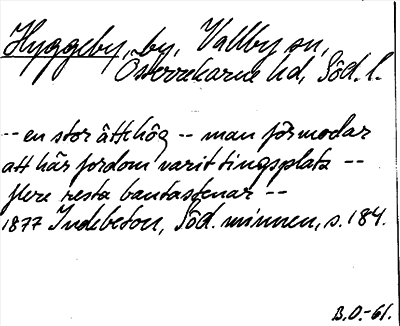 Hyggeby, by, Vallby sn,
Österrekarne hd, Söd. l.
-- en stor ättehög -- man förmodar
att här fordom varit tingsplats --
flere resta bautastenar --
1877 Indebetou, Söd. minnen, s. 184.
B.O.-61.